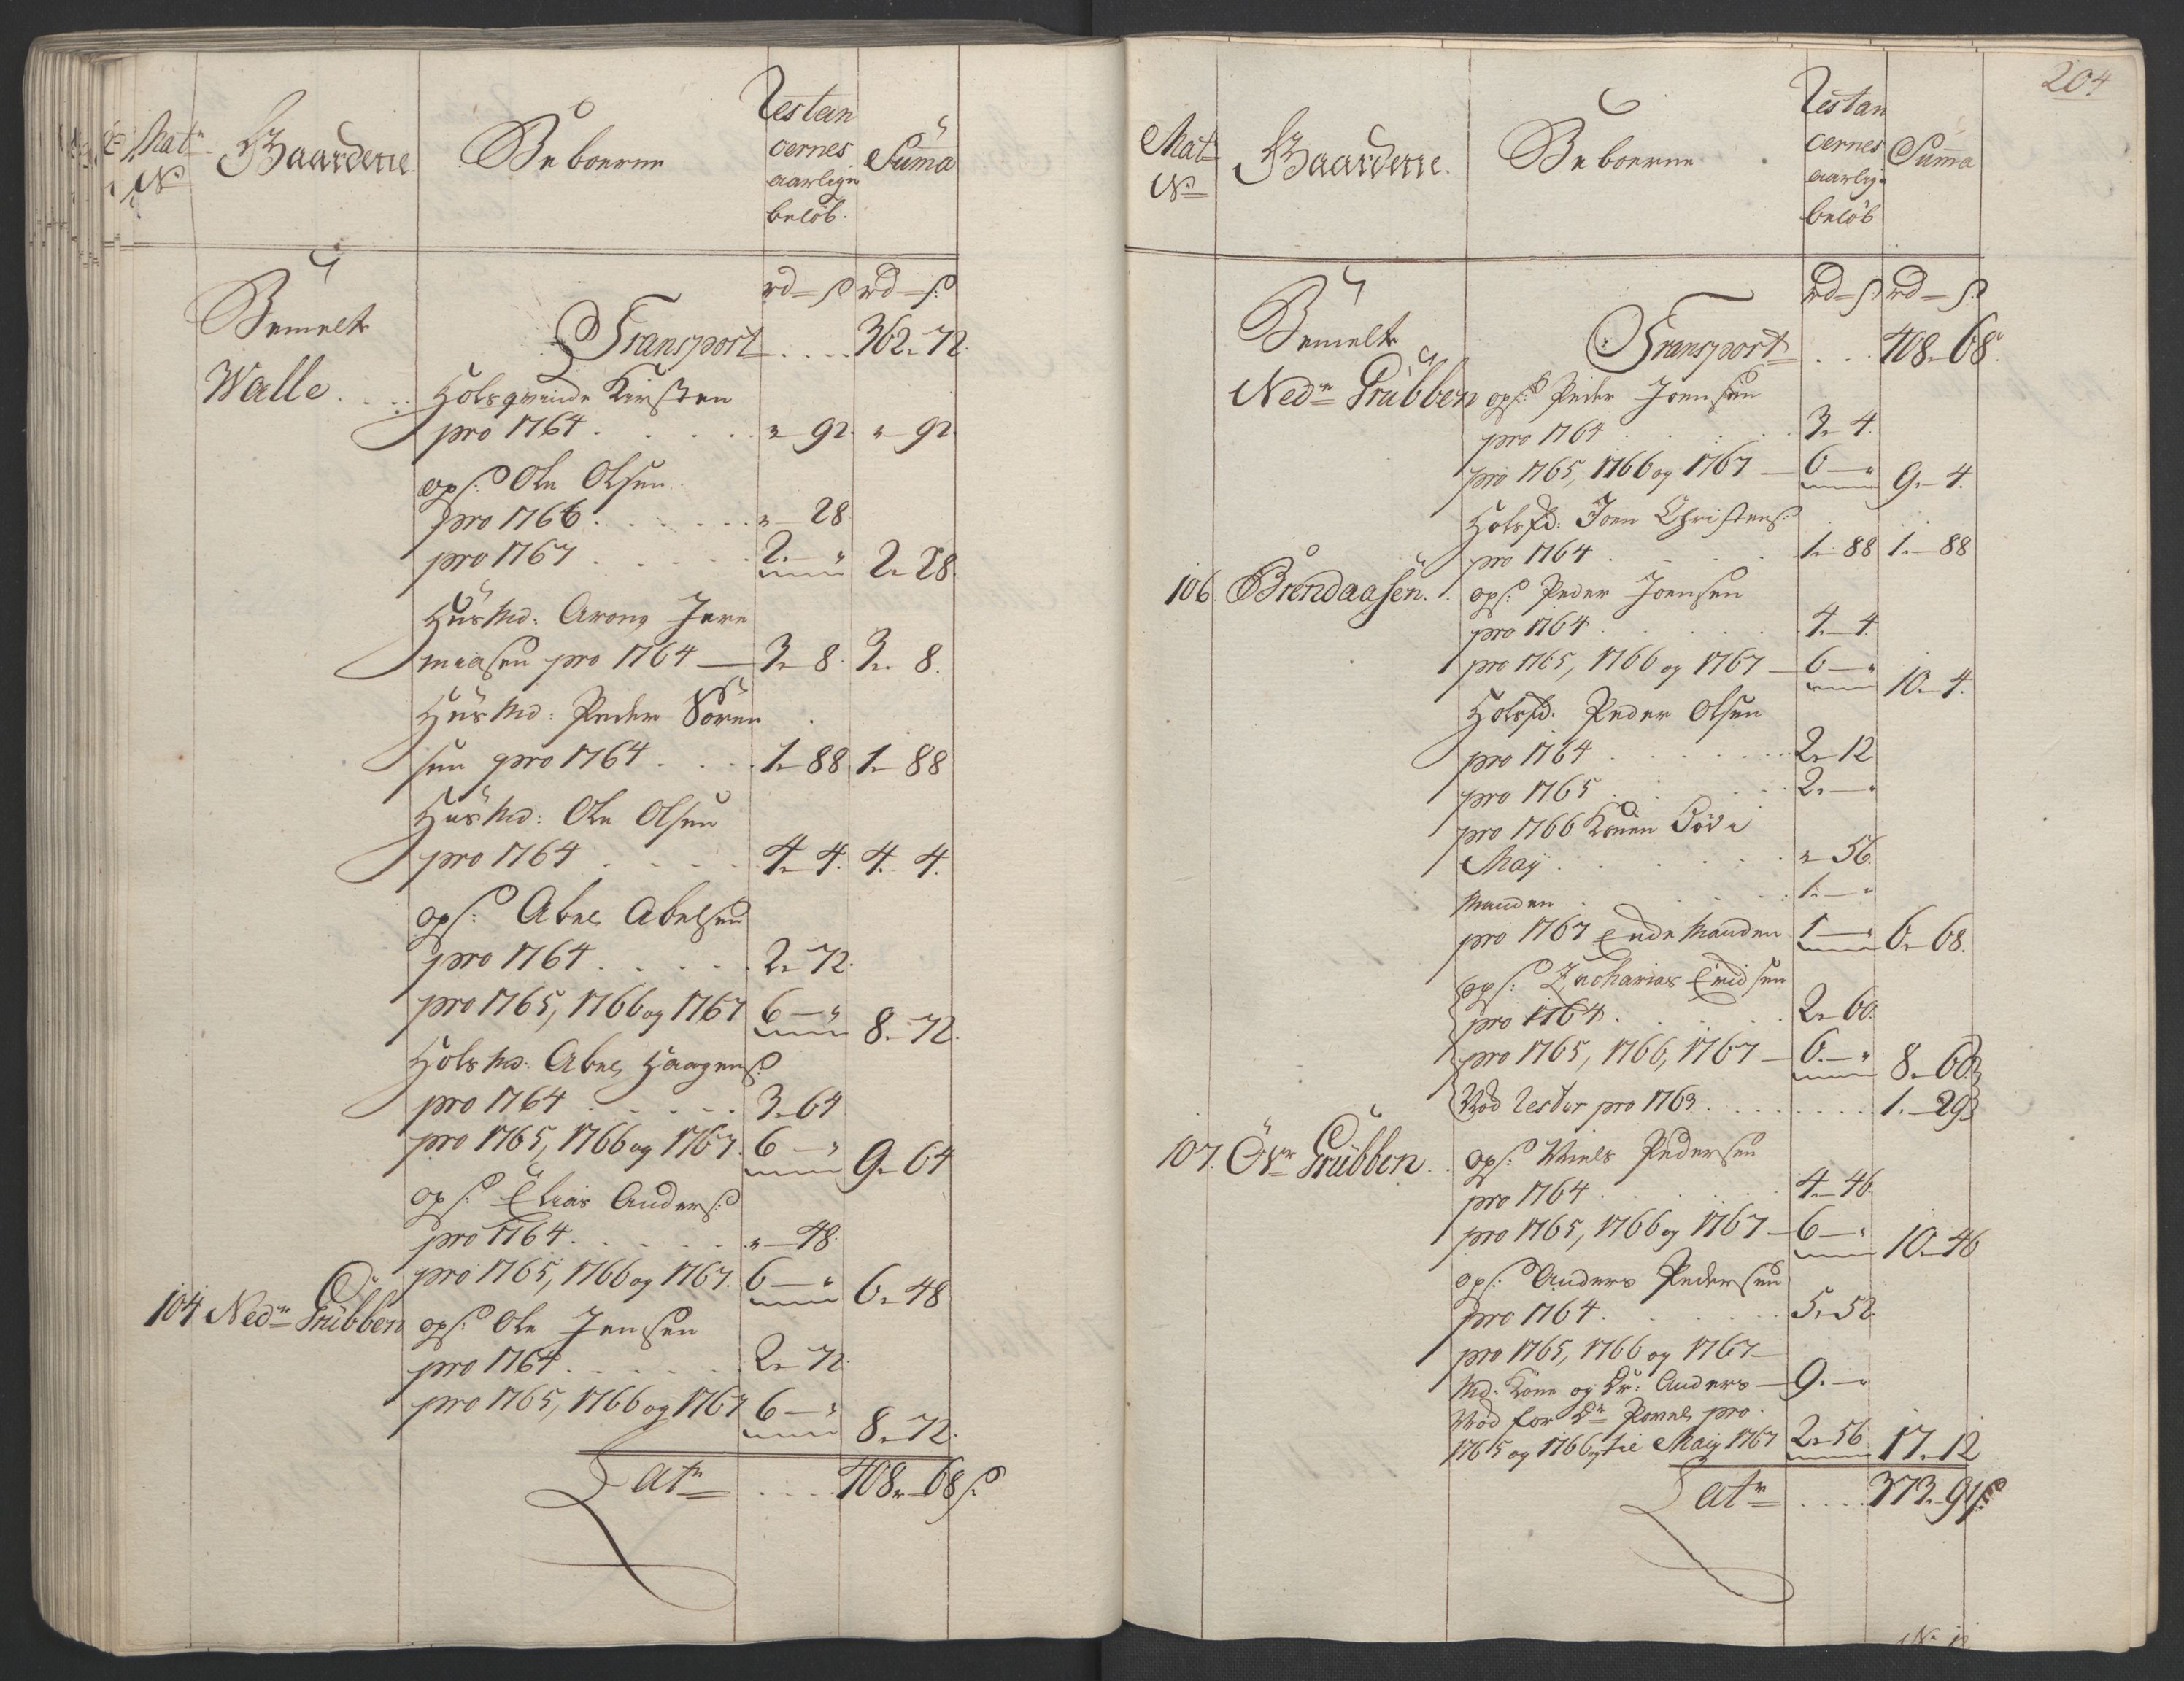 Matr
No
Gaardene
Beboerne
Restan
cernes
aarlige
beløb.
Summa
rd—s rd—s:
Bemelte
Transport . . . . 362.72.
Walle . . . Holsqvinde Kirsten
pro 1764 . . . . . „—92. „—92.
ops: Ole Olsen
pro 1766 . . . . . . „—28
pro 1767 . . . . . 2.—„ 2.28.
Husmd: Arong Jere
miasen pro 1764 — 3.8. 3. 8.
Husmd: Peder Sören
sen pro 1764 . . . . 1.88. 1.88
Husmd: Ole Olsen
pro 1764 . . . . . 4.4. 4. 4.
ops: Abel Abelsen
pro 1764 . . . . . 2.72.
pro 1765, 1766 og 1767 6—„ 8.72.
Holsmd: Abel Haagens:
pro 1764 . . . . . 3.64
pro 1765, 1766 og 1767. 6—„ 9.64
ops: Elias Anders:
pro 1764 . . . . . „—48.
pro 1765, 1766 og 1767. 6—„ 6.48
104 Nedr Grübben ops: Ole Jensen
pro 1764 . . . . . 2.72.
pro 1765, 1766 og 1767 6—„ 8.72.
Latr . . . . 408.68 s:
204
Matr
No
Gaardene.
Beboerne
Restan
cernes
aarlige
beløb
Summa
rd—s rd—s:
Bemelte
Transport . . . 408.68.
Nedr Grübben ops: Peder Joensen
pro 1764 . . . . . 3.4.
pro 1765, 1766 og 1767 — 6—„ 9.4.
Holsfd: Joen Christens:
pro 1764 . . . . . 1.88 1.—88
106. Brendaasen. . ops: Peder Joensen
pro 1764 . . . . . 4.4.
pro 1765, 1766 og 1767 — 6—„ 10.4.
Holsfd: Peder Olsen
pro 1764 . . . . . 2.12
pro 1765 . . . . . 2.—„
pro 1766 Konen Död i
Maij . . . . . „—56.
Manden . . . . . 1.—„
pro 1767 Ende Manden 1—„ 6.68.
ops: Zacharias Ericksen
pro 1764 . . . . . 2.60.
pro 1765, 1766, 1767 — 6.—„ 8.60
Nød Rester pro 1763 . . . . . 1.—29
107. Öfvr Grübben . . ops: Niels Pedersen
pro 1764 . . . . . 4.46
pro 1765, 1766 og 1767 — 6—„ 10.46
ops: Anders Pedersen
pro 1764 . . . . . 5.52.
pro 1765, 1766 og 1767
Md: Kone og Dr: Anders — 9.—„
Nød for Dr Povel pro
1765 og 1766 og til Maij 1767 2.56 17.12
Latr . . . . 373.91 s